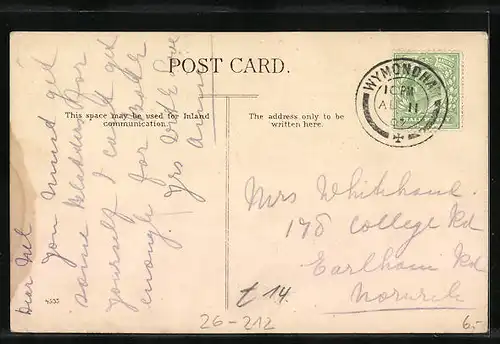 POST CARD.
This space may be used for Inland
communication.
The address only to be
written here.
WYMONDHA
10 PM
AU 11
07
Dear Nel
you must get
some bladders for
yourself I cant get
enough for
Yrs with love
Annie
Mrs Whitehand.
178 College Rd
Earlham Rd
Norwich
4555
t 14
26-212
6.-